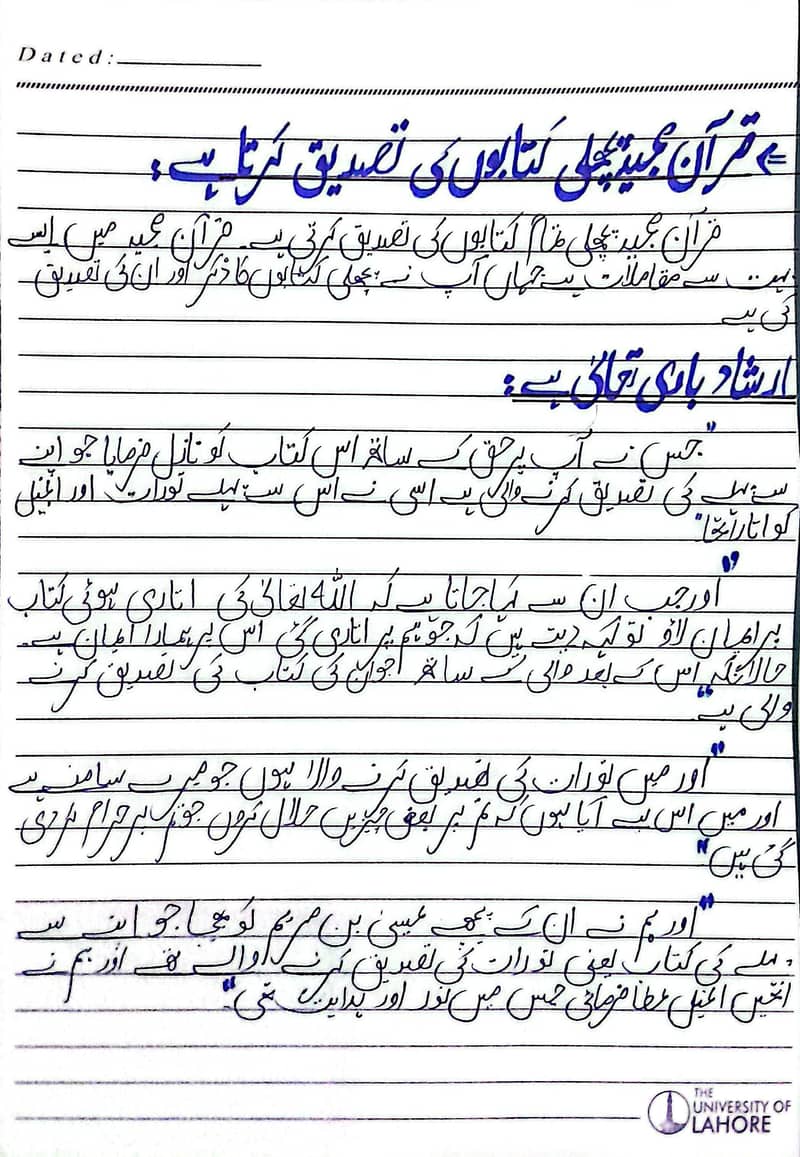 Dated:
⇐ قرآن مجید پچھلی کتابوں کی تصدیق کرتا ہے:
قرآن مجید پچھلی تمام کتابوں کی تصدیق کرتی ہے۔ قرآن مجید میں ایسے
بہت سے مقاملات ہے جہاں آپ نے پچھلی کتابوں کا ذکر اور ان کی تصدیق
کی ہے
ارشاد باری تعالیٰ ہے:
"جس نے آپ پر حق کے ساتھ اس کتاب کو نازل فرمایا جو اپنے
سے پہلے کی تصدیق کرنے والی ہے اسی نے اس سے پہلے تورات اور انجیل
کو اتارا تھا"
"اور جب ان سے کہا جاتا ہے کہ اللہ تعالیٰ کی اتاری ہوئی کتاب
پر ایمان لاؤ تو کہہ دیتے ہیں کہ جو ہم پر اتاری گئی اس پر ہمارا ایمان ہے۔
حالانکہ اس کے بعد والی کے ساتھ جو ان کی کتاب کی تصدیق کرنے
والی ہے"
"اور میں تورات کی تصدیق کرنے والا ہوں جو میرے سامنے ہے
اور میں اس لیے آیا ہوں کہ تم پر بعض چیزیں حلال کروں جو تم پر حرام کر دی
گئی ہیں"
"اور ہم نے ان کے پیچھے عیسیٰ بن مریم کو بھیجا جو اپنے سے
پہلے کی کتاب یعنی تورات کی تصدیق کرنے والے تھے اور ہم نے
انھیں انجیل عطا فرمائی جس میں نور اور ہدایت تھی"
THE
UNIVERSITY OF
LAHORE